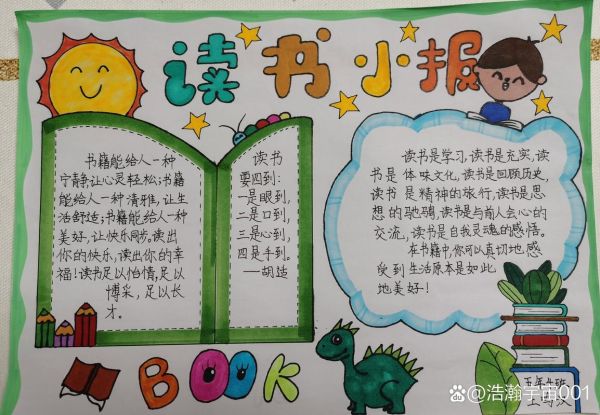 读书小报
书籍能给人一种
宁静让心灵轻松;书籍
能给人一种清雅,让生
活舒适;书籍能给人一种
美好,让快乐同步。读出
你的快乐,读出你的幸
福!读书足以怡情,足以
博采,足以长
才。
读书
要四到:
一是眼到,
二是口到,
三是心到,
四是手到。
——胡适
读书是学习,读书是充实,读
书是体味文化,读书是回顾历史,
读书是精神的旅行,读书是思
想的驰骋,读书是与前人会心的
交流,读书是自我灵魂的感悟。
在书籍中,你可以真切地感
受到生活原本是如此
地美好!
BOOK
@浩瀚宇宙001